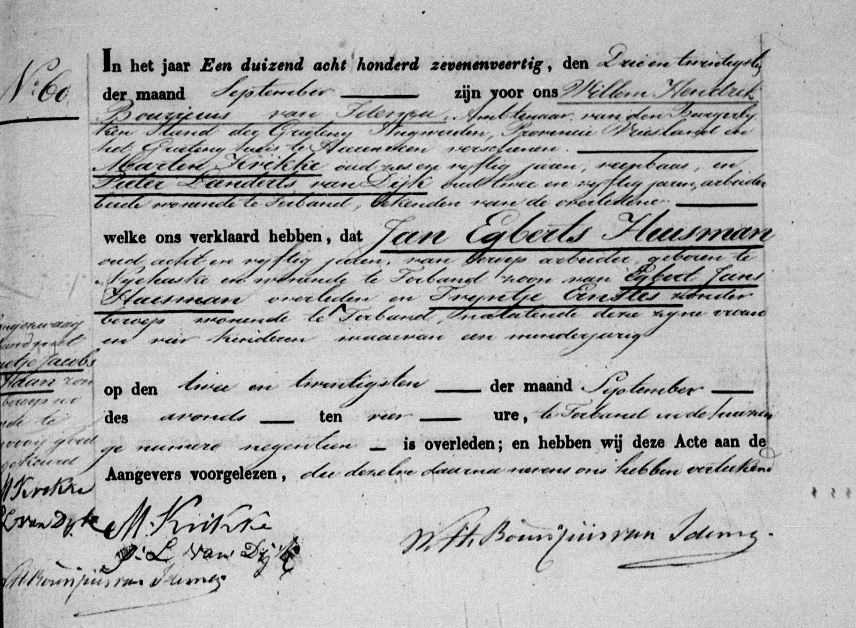 N: 60
In het jaar Een duizend acht honderd zevenenveertig, den Drie en twintigste
der maand September zijn voor ons Willem Hendrik
Bourjuis van Idema, Ambtenaar van den Burgerly
ken Stand der Grieteny Aengwirden, Provincie Vriesland en
het Grieteny huis te verschenen.
Marten Krikke oud zes en vyftig jaren, veenbaas, en
Pieter Lanberts van Dijk oud twee en vyftig jaren, arbeider
beide wonende te Terband, bekenden van de overledene
welke ons verklaard hebben, dat Jan Egberts Huisman
oud acht en vyftig jaren, van beroep arbeider, geboren te
Nyehaske en wonende te Terband zoon van Egbert Jans
Huisman overleden en Tryntje Ernstes zonder
beroep wonende te Terband, nalatende deze zyne vrouw
en vier kinderen waarvan een minderjarig
op den twee en twintigsten der maand September
des avonds ten vier ure, te Terband in de huizin
ge numero negentien is overleden; en hebben wij deze Acte aan de
Aangevers voorgelezen, die dezelve daarna nevens ons hebben getekend
Jacobs
zon
beroep wo
nde te
goed
gekeurd
M Krikke
P L van Dyk
W H Bourjuis van Idema
M. Krikke
P. L. van Dijk
W. H. Bourjuis van Idema.